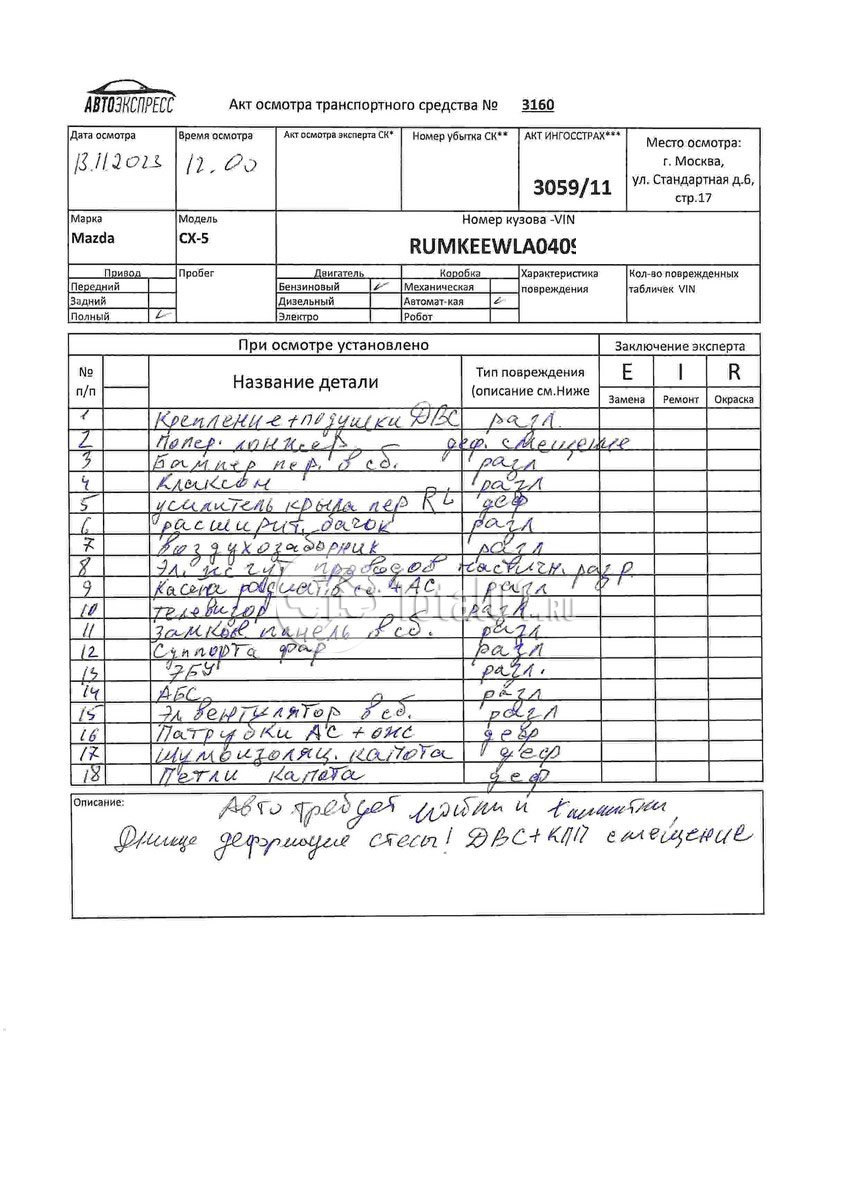 АВТОЭКСПРЕСС
Акт осмотра транспортного средства № 3160
Дата осмотра Время осмотра Акт осмотра эксперта СК* Номер убытка СК** АКТ ИНГОССТРАХ*** Место осмотра:
13.11.2023 12.00 3059/11 г. Москва,
ул. Стандартная д.6,
стр.17
Марка Модель Номер кузова -VIN
Mazda CX-5 RUMKEEWLA0409
Привод Пробег Двигатель Коробка Характеристика повреждения Кол-во поврежденных табличек VIN
Передний Бензиновый ✓ Механическая
Задний Дизельный Автомат-кая ✓
Полный ✓ Электро Робот
При осмотре установлено Заключение эксперта
№ п/п Название детали Тип повреждения (описание см.Ниже E I R
Замена Ремонт Окраска
1 Крепление+подушки ДВС разл.
2 Попер. лонжер. деф. смещение
3 Бампер пер. в сб. разл
4 Клаксон разл
5 усилитель крыла пер RL деф
6 расширит. бачок разл
7 Воздухозаборник разл
8 Эл. жгут проводов частичн. разр.
9 Касета радиат. в сб. +АС разл
10 телевизор разл
11 Замков. панель в сб. разл
12 Суппорта фар разл
13 ЭБУ разл.
14 АБС разл
15 Эл вентилятор в сб. разл
16 Патрубки АС + ожс деф
17 шумоизоляц. капота деф
18 Петли капота деф
Описание: Авто требует мойки и
Днище стесы! ДВС+КПП смещение
TOTAL .RU